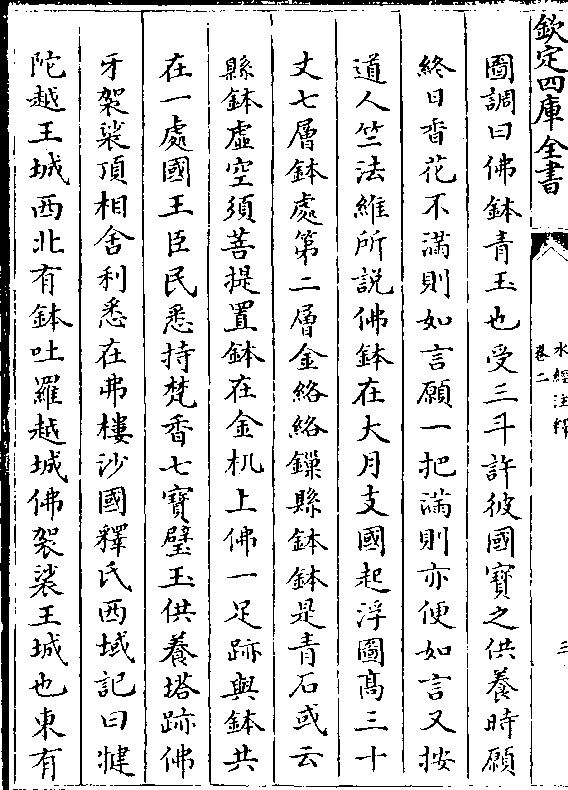 欽定四庫全書
水經注釋
卷二
三
圖調曰佛鉢青玉也受三斗許彼國寶之供養時願
終日香花不滿則如言願一把滿則亦便如言又按
道人竺法維所説佛鉢在大月支國起浮圖髙三十
丈七層鉢處第二層金絡絡鏁縣鉢鉢是青石或云
縣鉢虛空須菩提置鉢在金机上佛一足跡與鉢共
在一處國王臣民悉持梵香七寶璧玉供養塔跡佛
牙袈裟頂相舍利悉在弗樓沙國釋氏西域記曰揵
陀越王城西北有鉢吐羅越城佛袈裟王城也東有